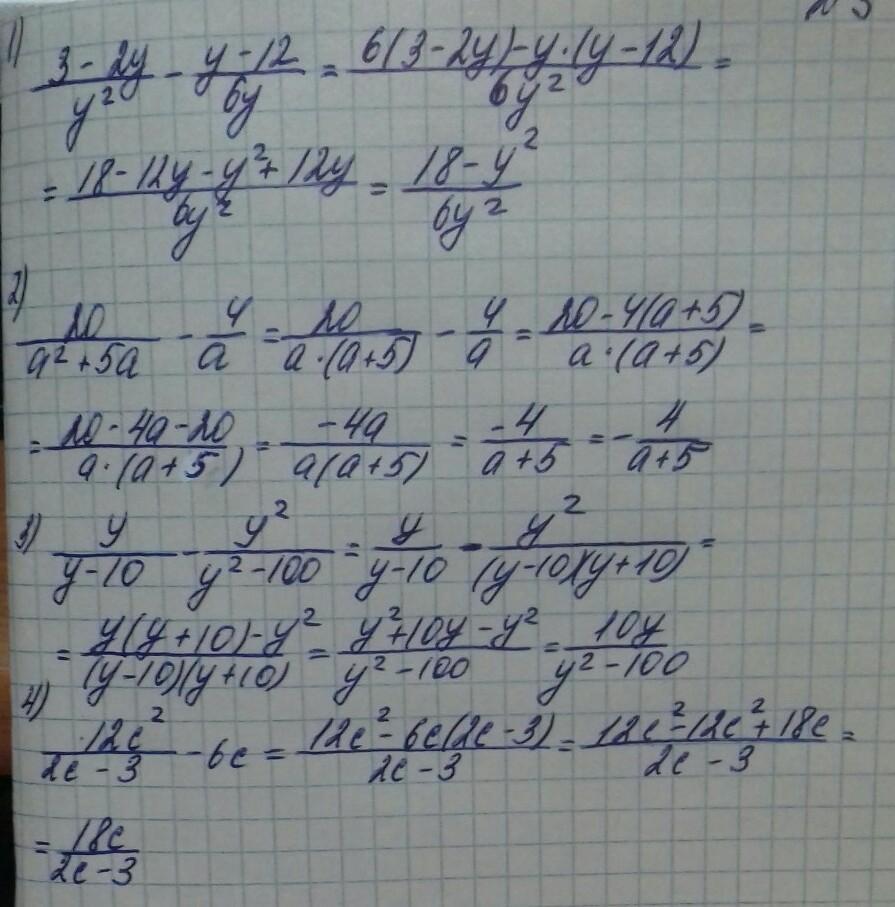 1) (3-2y)/y² - (y-12)/6y = (6(3-2y)-y·(y-12))/6y² =
= (18-12y-y²+12y)/6y² = (18-y²)/6y²
2) 20/(a²+5a) - 4/a = 20/(a·(a+5)) - 4/a = (20-4(a+5))/(a·(a+5)) =
= (20-4a-20)/(a·(a+5)) = -4a/(a(a+5)) = -4/(a+5) = -4/(a+5)
3) y/(y-10) - y²/(y²-100) = y/(y-10) - y²/((y-10)(y+10)) =
= (y(y+10)-y²)/((y-10)(y+10)) = (y²+10y-y²)/(y²-100) = 10y/(y²-100)
4) 12c²/(2c-3) - 6c = (12c²-6c(2c-3))/(2c-3) = (12c²-12c²+18c)/(2c-3) =
= 18c/(2c-3)